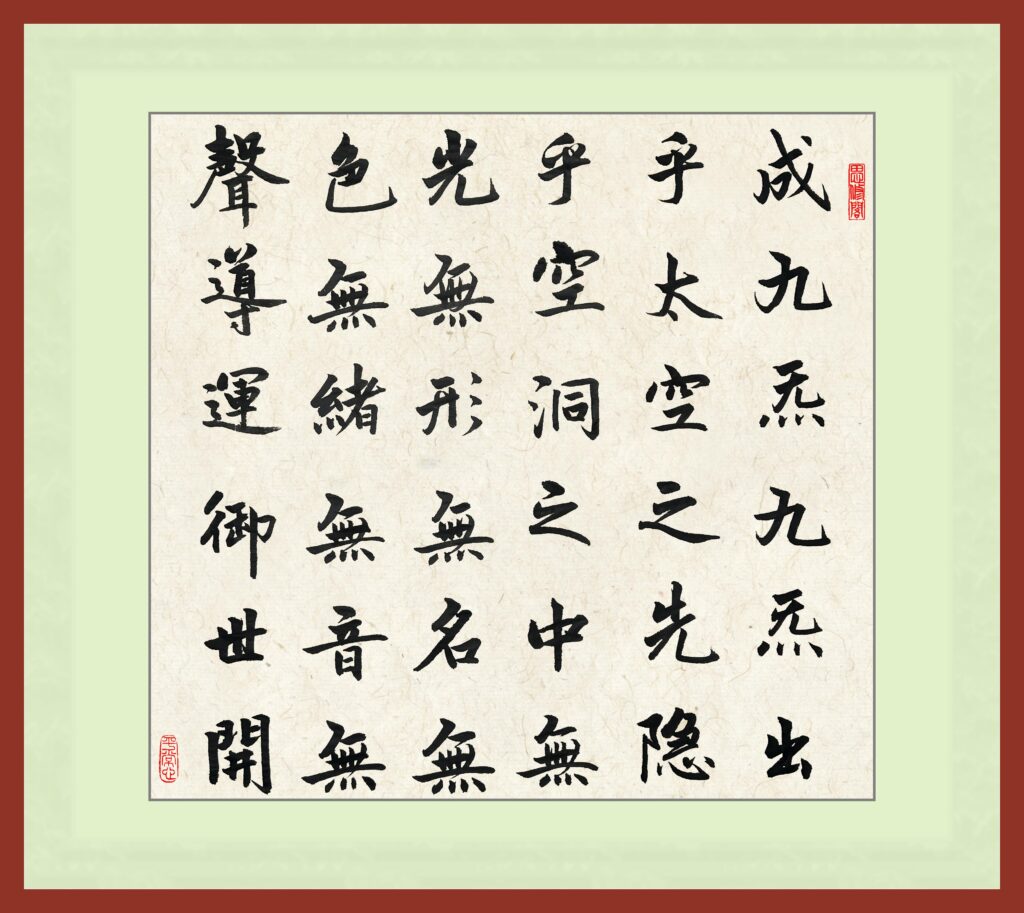 成九炁九炁出
乎太空之先隐
乎空洞之中無
光無形無名無
色無緒無音無
聲導運御世開
思修閣
平常心